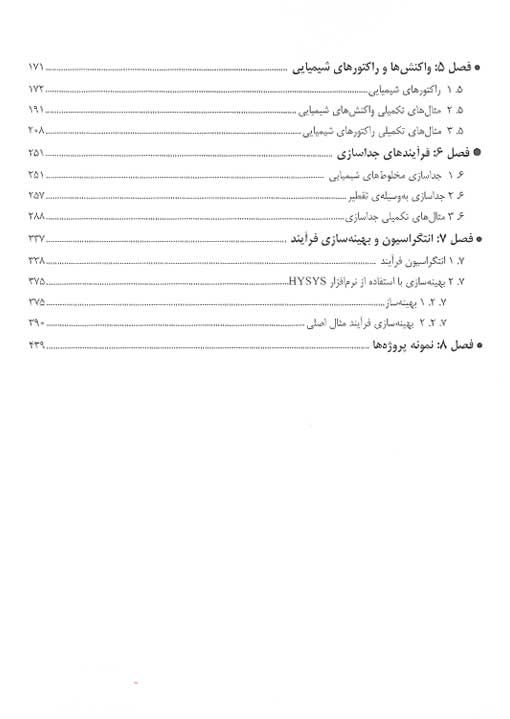 ● فصل ۵: واکنش‌ها و راکتورهای شیمیایی ........ ۱۷۱
۵. ۱ راکتورهای شیمیایی ........ ۱۷۲
۵. ۲ مثال‌های تکمیلی واکنش‌های شیمیایی ........ ۱۹۱
۵. ۳ مثال‌های تکمیلی راکتورهای شیمیایی ........ ۲۰۸
● فصل ۶: فرآیندهای جداسازی ........ ۲۵۱
۶. ۱ جداسازی مخلوط‌های شیمیایی ........ ۲۵۱
۶. ۲ جداسازی به‌وسیله‌ی تقطیر ........ ۲۵۷
۶. ۳ مثال‌های تکمیلی جداسازی ........ ۲۸۸
● فصل ۷: انتگراسیون و بهینه‌سازی فرآیند ........ ۳۳۷
۷. ۱ انتگراسیون فرآیند ........ ۳۳۸
۷. ۲ بهینه‌سازی با استفاده از نرم‌افزار HYSYS ........ ۳۷۵
۷. ۲. ۱ بهینه‌ساز ........ ۳۷۵
۷. ۲. ۲ بهینه‌سازی فرآیند مثال اصلی ........ ۳۹۰
● فصل ۸: نمونه پروژه‌ها ........ ۴۳۹